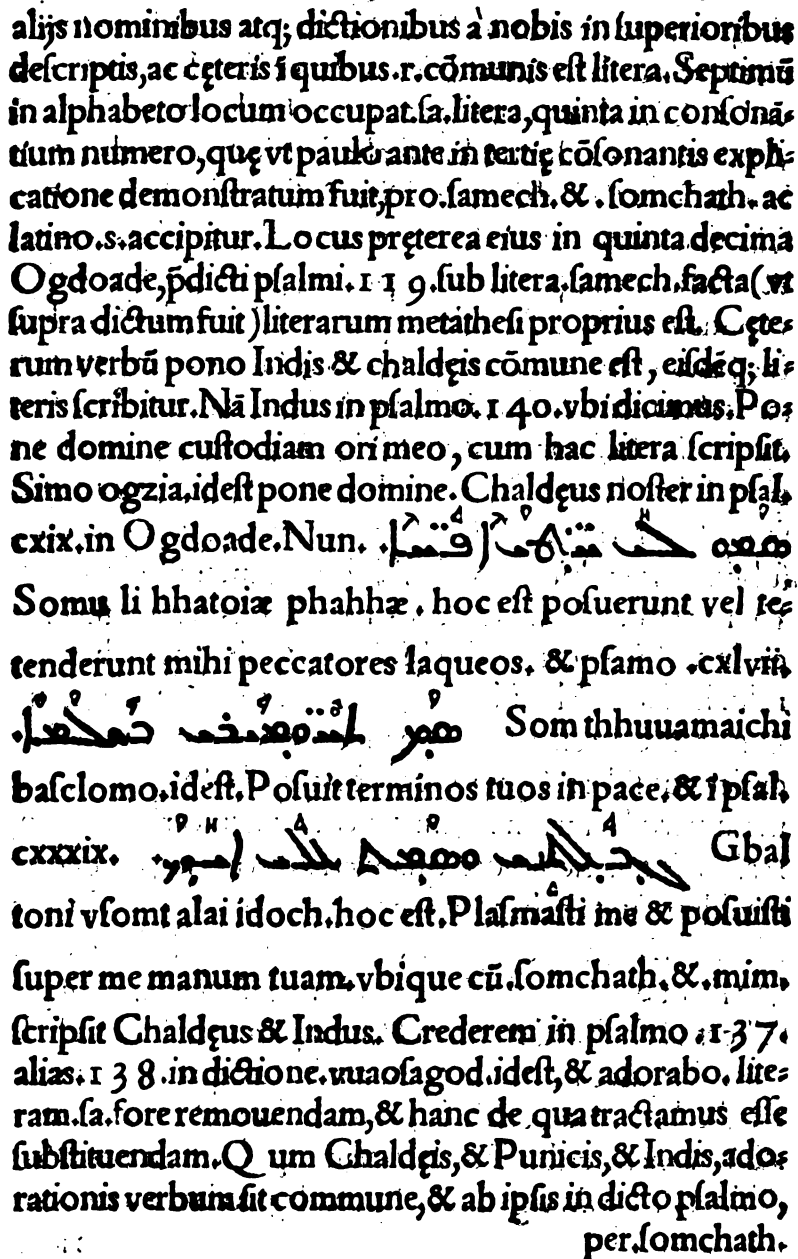 alijs nominibus atq; dictionibus à nobis in superioribus
descriptis,ac cęteris ĩ quibus.r.cõmunis est litera.Septimũ
in alphabeto locum occupat.sa.litera,quinta in consonã-
tium numero,quę vt paulo ante in tertię cõsonantis expli-
catione demonstratum fuit,pro.samech.&.somchath.ac
latino.s.accipitur.Locus pręterea eius in quinta decima
Ogdoade,p̃dicti psalmi.119.sub litera.samech.facta(vt
supra dictum fuit)literarum metathesi proprius est. Cęte-
rum verbũ pono Indis & chaldęis cõmune est, eisdẽq; li-
teris scribitur.Nã Indus in psalmo.140.vbi dicimus.Po-
ne domine custodiam ori meo, cum hac litera scripsit.
Simo ogzia.idest pone domine. Chaldęus noster in psal.
cxix.in Ogdoade.Nun. ܣܡܘ ܠܝ ܚܛܝ̈ܐ ܦܚ̈ܐ.
Somu li hhatoiæ phahhæ. hoc est posuerunt vel te-
tenderunt mihi peccatores laqueos. & psamo .cxlvii.
ܣܡ ܬܚܘ̈ܡܝܟܝ ܒܫܠܡܐ. Som thhuuamaichi
basclomo.idest.Posuit terminos tuos in pace.& ĩ psal.
cxxxix. ܓܒܠܬܢܝ ܘܣܡܬ ܥܠܝ ܐܝܕܟ. Gbal
toni vsomt alai idoch.hoc est.Plasmasti me & posuisti
super me manum tuam.vbique cũ.somchath.&.mim.
scripsit Chaldęus & Indus. Crederem in psalmo .137.
alias.138.in dictione.vuaosagod.idest,& adorabo. lite-
ram.sa.fore remouendam,& hanc de qua tractamus esse
substituendam.Qum Chaldęis,& Punicis,& Indis,ado-
rationis verbum sit commune,& ab ipsis in dicto psalmo,
per.somchath.